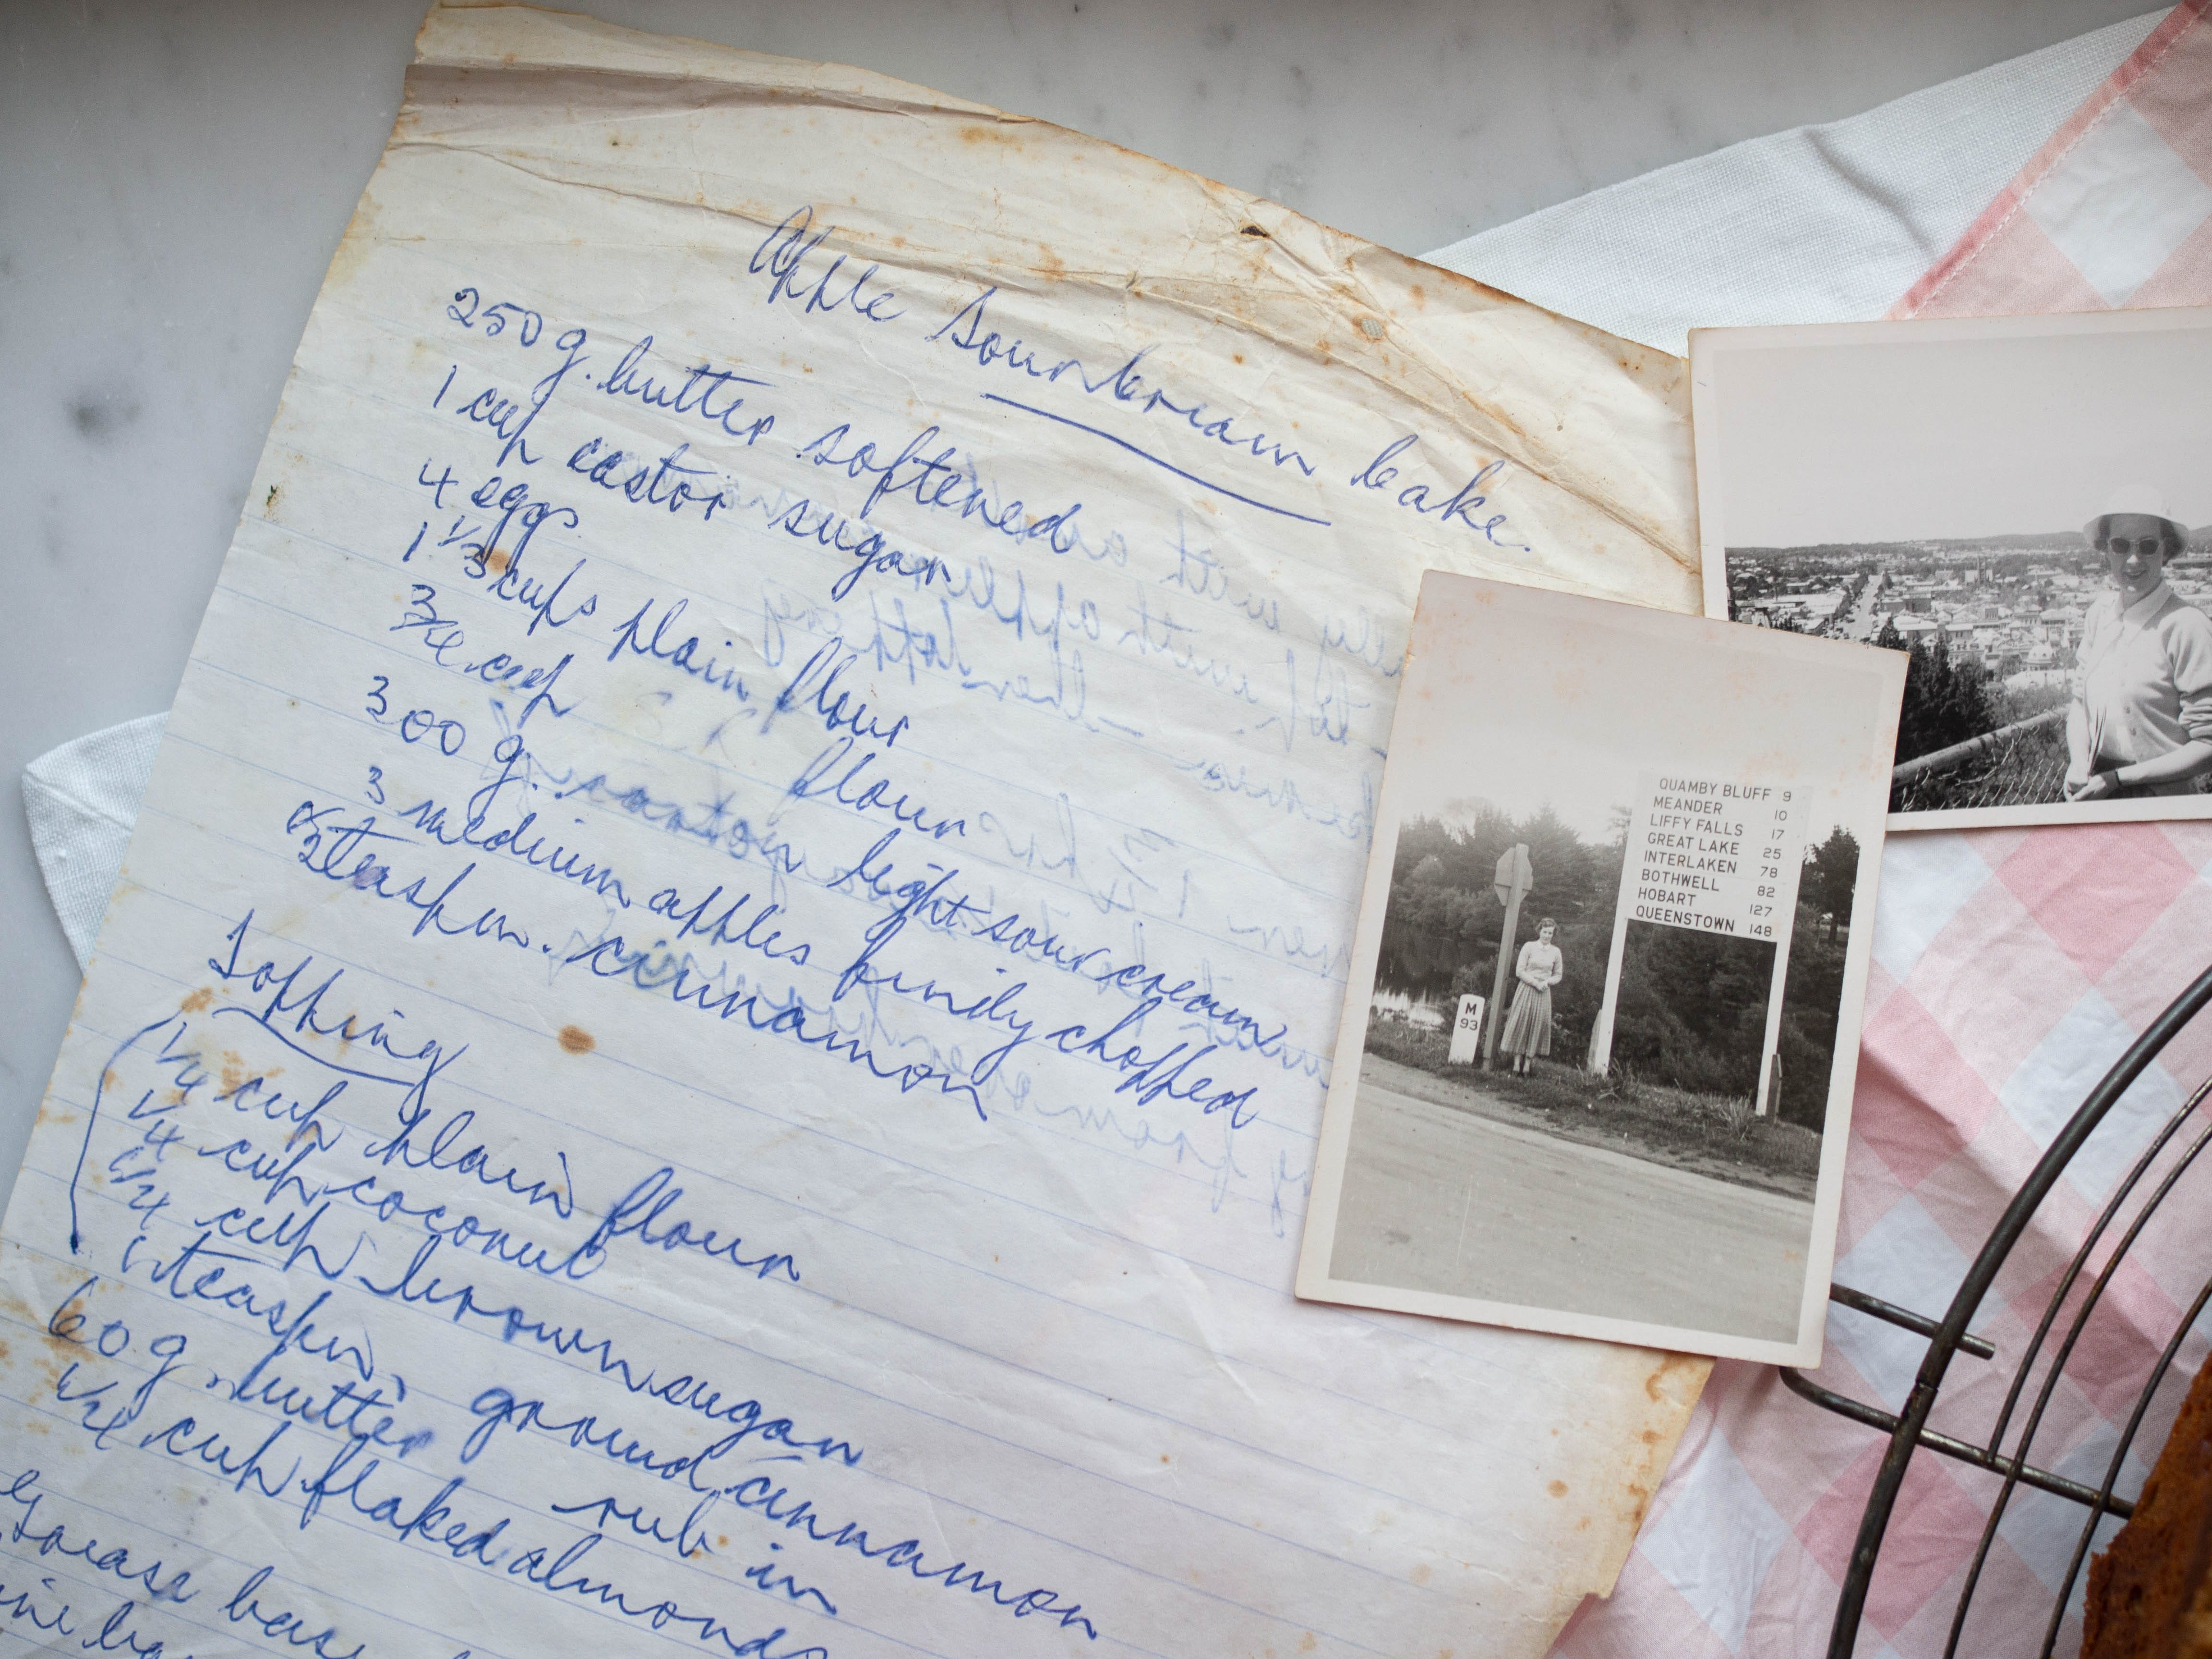 Apple Sour bream Cake.
250 g. butter softened
1 cup castor sugar
4 eggs
1 1/3 cups plain flour
3/4 cup flour
300 g. light sour cream
3 medium apples finely chopped
teaspn. cinnamon
Topping
1/4 cup plain flour
1/4 cup coconut
1/4 cup brown sugar
1 teaspn ground cinnamon
60 g. butter rub in
1/4 cup flaked almonds
Grease base
QUAMBY BLUFF 9
MEANDER 10
LIFFY FALLS 17
GREAT LAKE 25
INTERLAKEN 78
BOTHWELL 82
HOBART 127
QUEENSTOWN 148
M
93